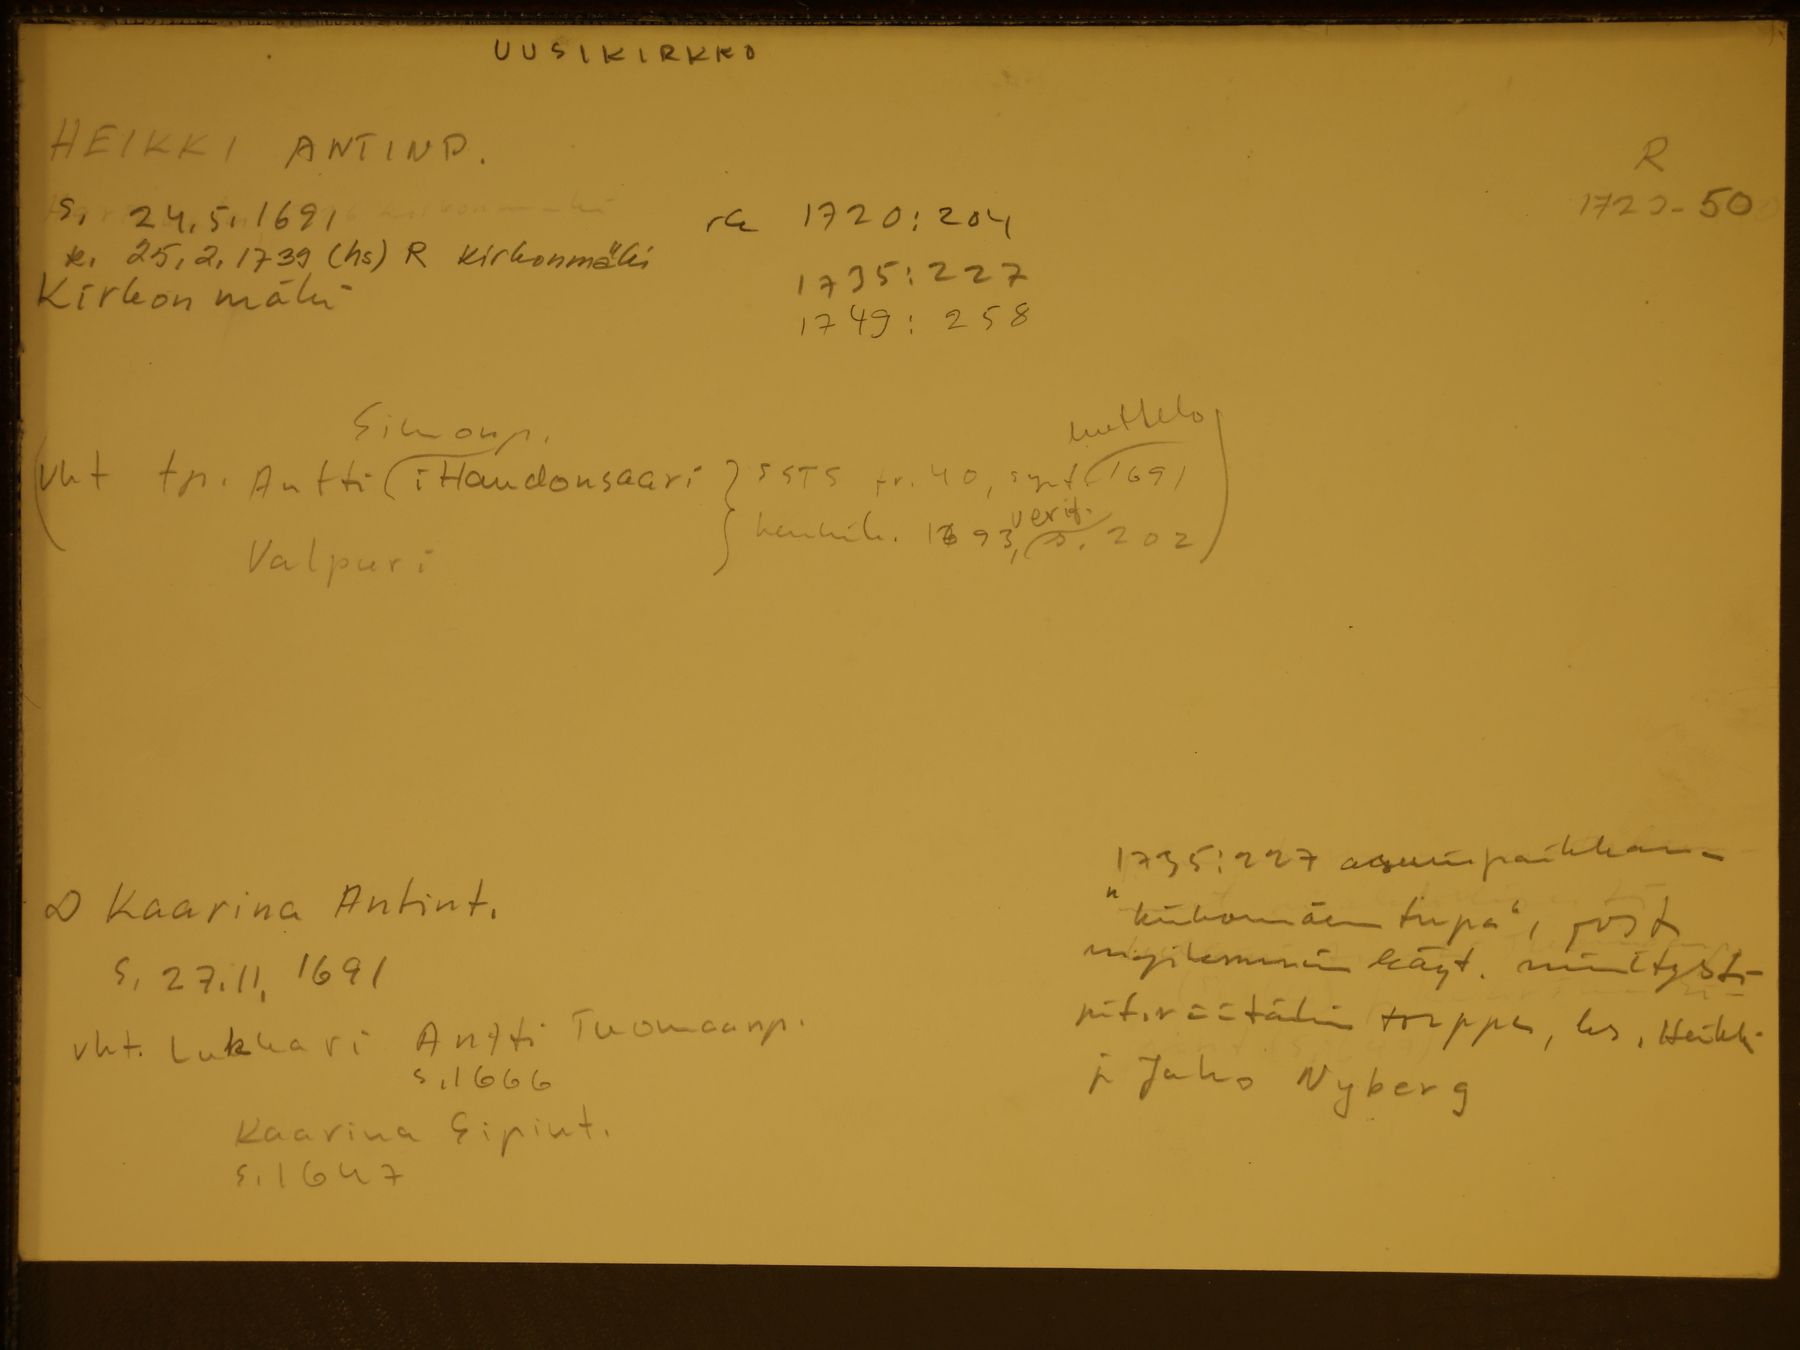 UUSIKIRKKO
HEIKKI ANTINP.
R
1720-50
s. 24.5.1691
rk 1720:204
k. 25.2.1739 (hs) R Kirkonmäki
1735:227
Kirkonmäki
1749:258
Simonp.
luettelo
(vht tp. Antti (i Haudonsaari } SSTS tr. 40, synt. 1691
henkik. 1693, verif. s. 202)
Valpuri
∞ Kaarina Antint.
s. 27.11.1691
vht. Lukkari Antti Tuomaanp.
s. 1666
Kaarina Sipint.
s. 1647
1735:227 asuinpaikkana
"kirkonmäen tupa", jost
myöhemmin käyt. nimityst.
pit.räätälin torppa, ks. Heikki
ja Jako Nyberg